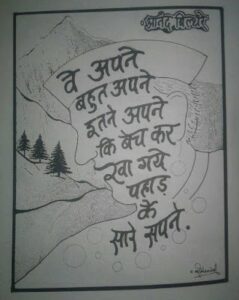 वे अपने
बहुत अपने
इतने अपने
कि बेच कर
खा गये
पहाड़
के
सारे सपने.